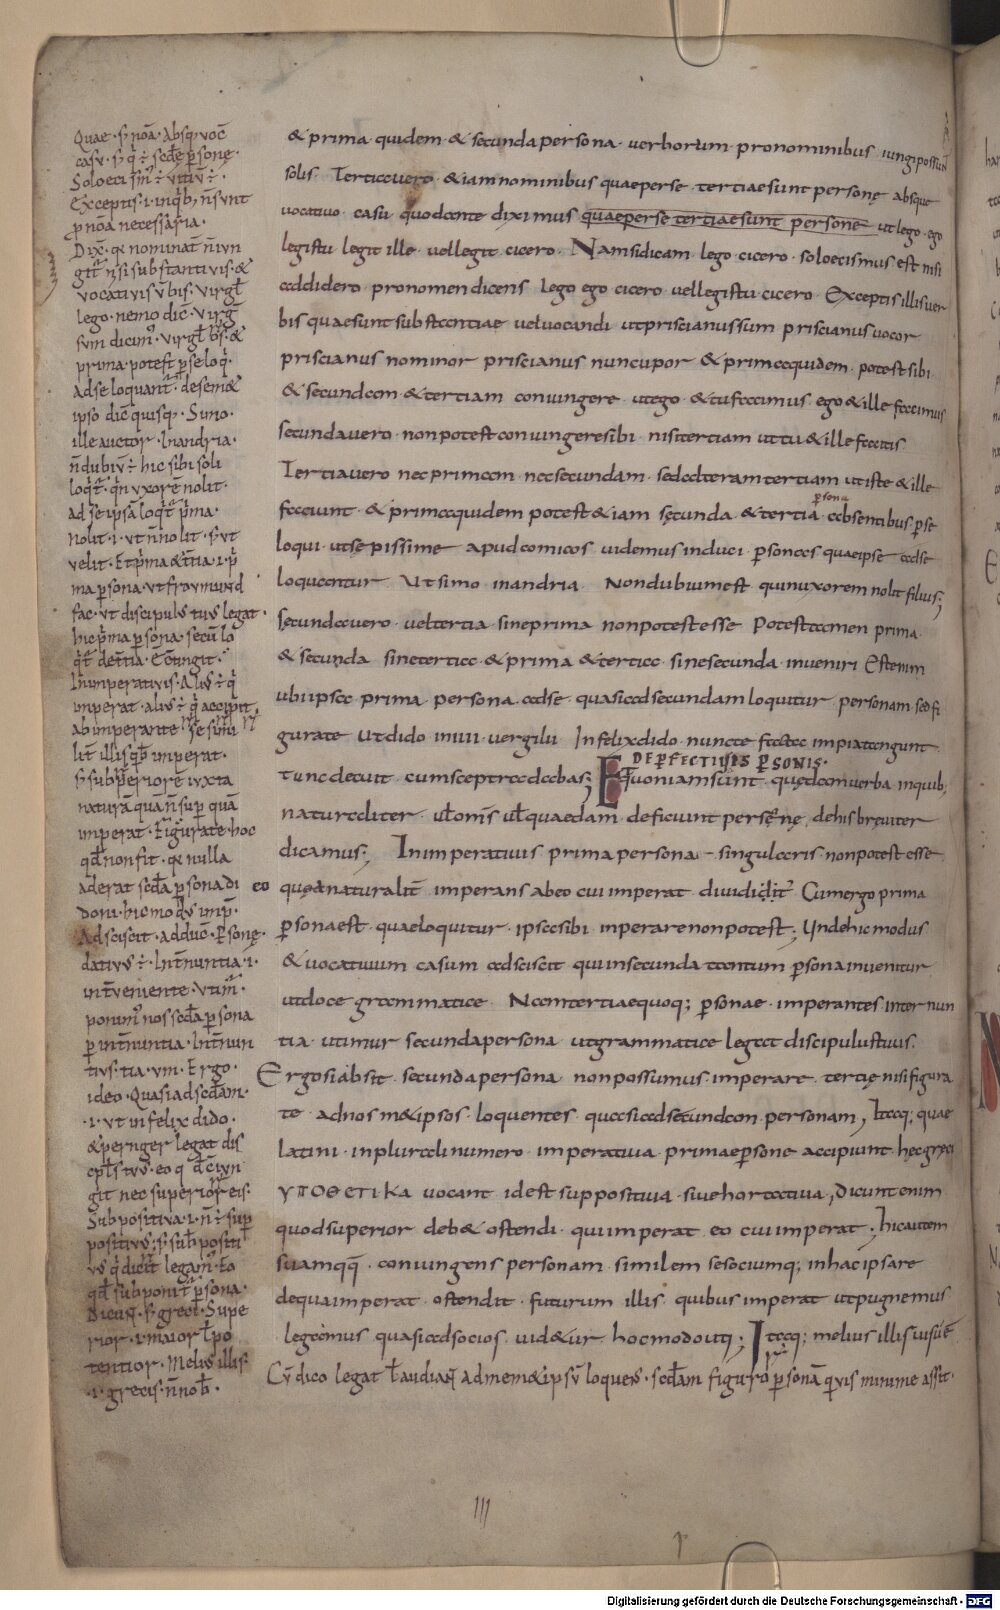 Quae · ÷ noā · absq; voc̄
casu · ÷ q̄ ÷ scdę psonę ·
Soloecismꝰ · i · vitiū ÷ ·
Exceptis · i · inq̇b; n̄ sunt
pnoā necessaria ·
Dix̄ · qꝫ nominat n̄ iun
git᷑ nisi substantivis · &
vocativis v̄bis · virgł
lego · nemo dic̄ · virg̅
sum dicimꝰ · virgł
prima · potest p se loq̇ ·
ad se loquant᷑ · de sem&
ipso dic̄ quisq; · Simo ·
ille auctor · In andria ·
n̄ dubiū ÷ hic sibi soli
loq̇t᷑ · qn̄ uxorē nolit ·
ad se ipsā loq̇t᷑ pma ·
nolit · i · ut n̄ nolit · ÷ ut
velit · Et pma & t̄tia · i · p
ma psona · ut
fac · ut discipulꝰ tuꝰ legat ·
hic pma psona · secū lo
q̇t᷑ de t̄tia · Cōtingit ·
In imperativis · Aliꝰ ÷ q̇
imperat · aliꝰ ÷ q̇ accipit
ab imperante
lit̄ illis q̇b; imperat ·
÷ superiorē iuxta
naturā quā n̄ sup quā
imperat · Figurate · hoc
qđ non fit · qꝫ nulla
aderat scđa psona di
doni · hic modꝰ · imp̄ ·
Adsciscit · adduc̄ · Psonę ·
dativꝰ ÷ · Int̄nuntia · i ·
int̄veniente · utim᷑ ·
ponimꝰ nos scđa psona
p int̄nuntia · Int̄nun
tiꝰ · tia · um · Ergo ·
ideo · Quasi ad scđam ·
· i · ut infelix dido ·
& pernger legat dis
cpłs tuꝰ · eo q̇ dc̄ iun
git nec superior eis ·
Subpositiva · i · n̄ ÷ sup
positivꝰ ; ÷ subpositi
vꝰ q̇ dicit legamꝰ · Eo
qđ subponit᷑ psona ·
Dicuɴ̄ · ÷ greci · Supe
rior · i · maior ł po
tentior · Meliꝰ illis ·
· i · grecis · n̄ nob̄ ·
& prima quidem · & secunda persona · verborum pronominibus iungi possun
solis Tertia vero · & iam nominibus quae per se · tertiae sunt personę absque
vocativo casu quod ante diximus quae per se tertiae sunt personę ut lego · ego
legis tu legit ille vel legit cicero · Nam si dicam · lego cicero · soloecismus est nisi
addidero pronomen dicens lego ego cicero vel legis tu cicero · Exceptis illis ver
bis quae sunt substantiae vel vocandi ut priscianus sum priscianus vocor
priscianus nominor priscianus nuncupor & prima quidem · potest sibi
& secundam & tertiam coniungere ut ego · & tu facimus ego & ille facimus
secunda vero · non potest coniungere sibi · nisi tertiam ut tu & ille facitis
Tertia vero nec primam · nec secundam · sed ad teram tertiam ut iste & ille
persona
faciunt · & prima quidem potest & iam secunda · & tertia · absentibus p se
loqui · ut sepissime apud comicos videmus induci · psonas quae ipse ad se
loquantur Ut simo in andria Non dubium est quin uxorem nolit filius ;
secunda vero vel tertia sine prima non potest esse Potest tamen prima ·
& secunda sine tertia · & prima & tertia · sine secunda · inveniri Est enim
ubi ipsa · prima persona · ad se · quasi ad secundam loquitur personam · sed fi
gurate Ut dido in iiii · vergilii Infelix dido nunc te facta impia tangunt
DEFECTIVIS PSONIS ·
tunc decuit cum sceptra dabas ; Quoniam sunt quędam verba in quib;
naturaliter vł om̄s vł quaedam · deficiunt personę de his breviter
dicamus ; In imperativis prima persona · singularis · non potest esse
eo quęd naturalit̄ imperans ab eo cui imperat dividit᷑ Cum ergo prima
psona est quae loquitur · ipsa sibi imperare non potest ; Unde hic modus
& vocativum casum adsciscit qui in secunda tantum psona invenitur
ut doce grammatice · Nam tertiae quoq; psonae · imperantes inter nun
tia utimur secunda persona ut grammatice legat discipulus tuus ·
Ergo si absit secunda persona non possumus imperare tertię nisi figura
te ad nosm&ipsos loquentes quasi ad secundam personam , Itaq; quae
latini in plurali numero imperativa primae psone accipiunt hęc gręci
ΥΠΟΘΕΤΙΚΑ vocant id est suppositiva sive hortativa , Dicunt enim
quod superior deb& ostendi qui imperat eo cui imperat ; hic autem
suam qq̄ coniungens personam similem se sociumq; in hac ipsa re
de qua imperat ostendit futurum illis quibus imperat ut pugnemus
legamus quasi ad socios vid&ur hoc modo uti ; Itaq; melius illis visū ē
Cū dico legat ł audiat ad mem&ipsū loquens · scđam figuro psonā qvis minime assit ·
III
Digitalisierung gefördert durch die Deutsche Forschungsgemeinschaft - DFG